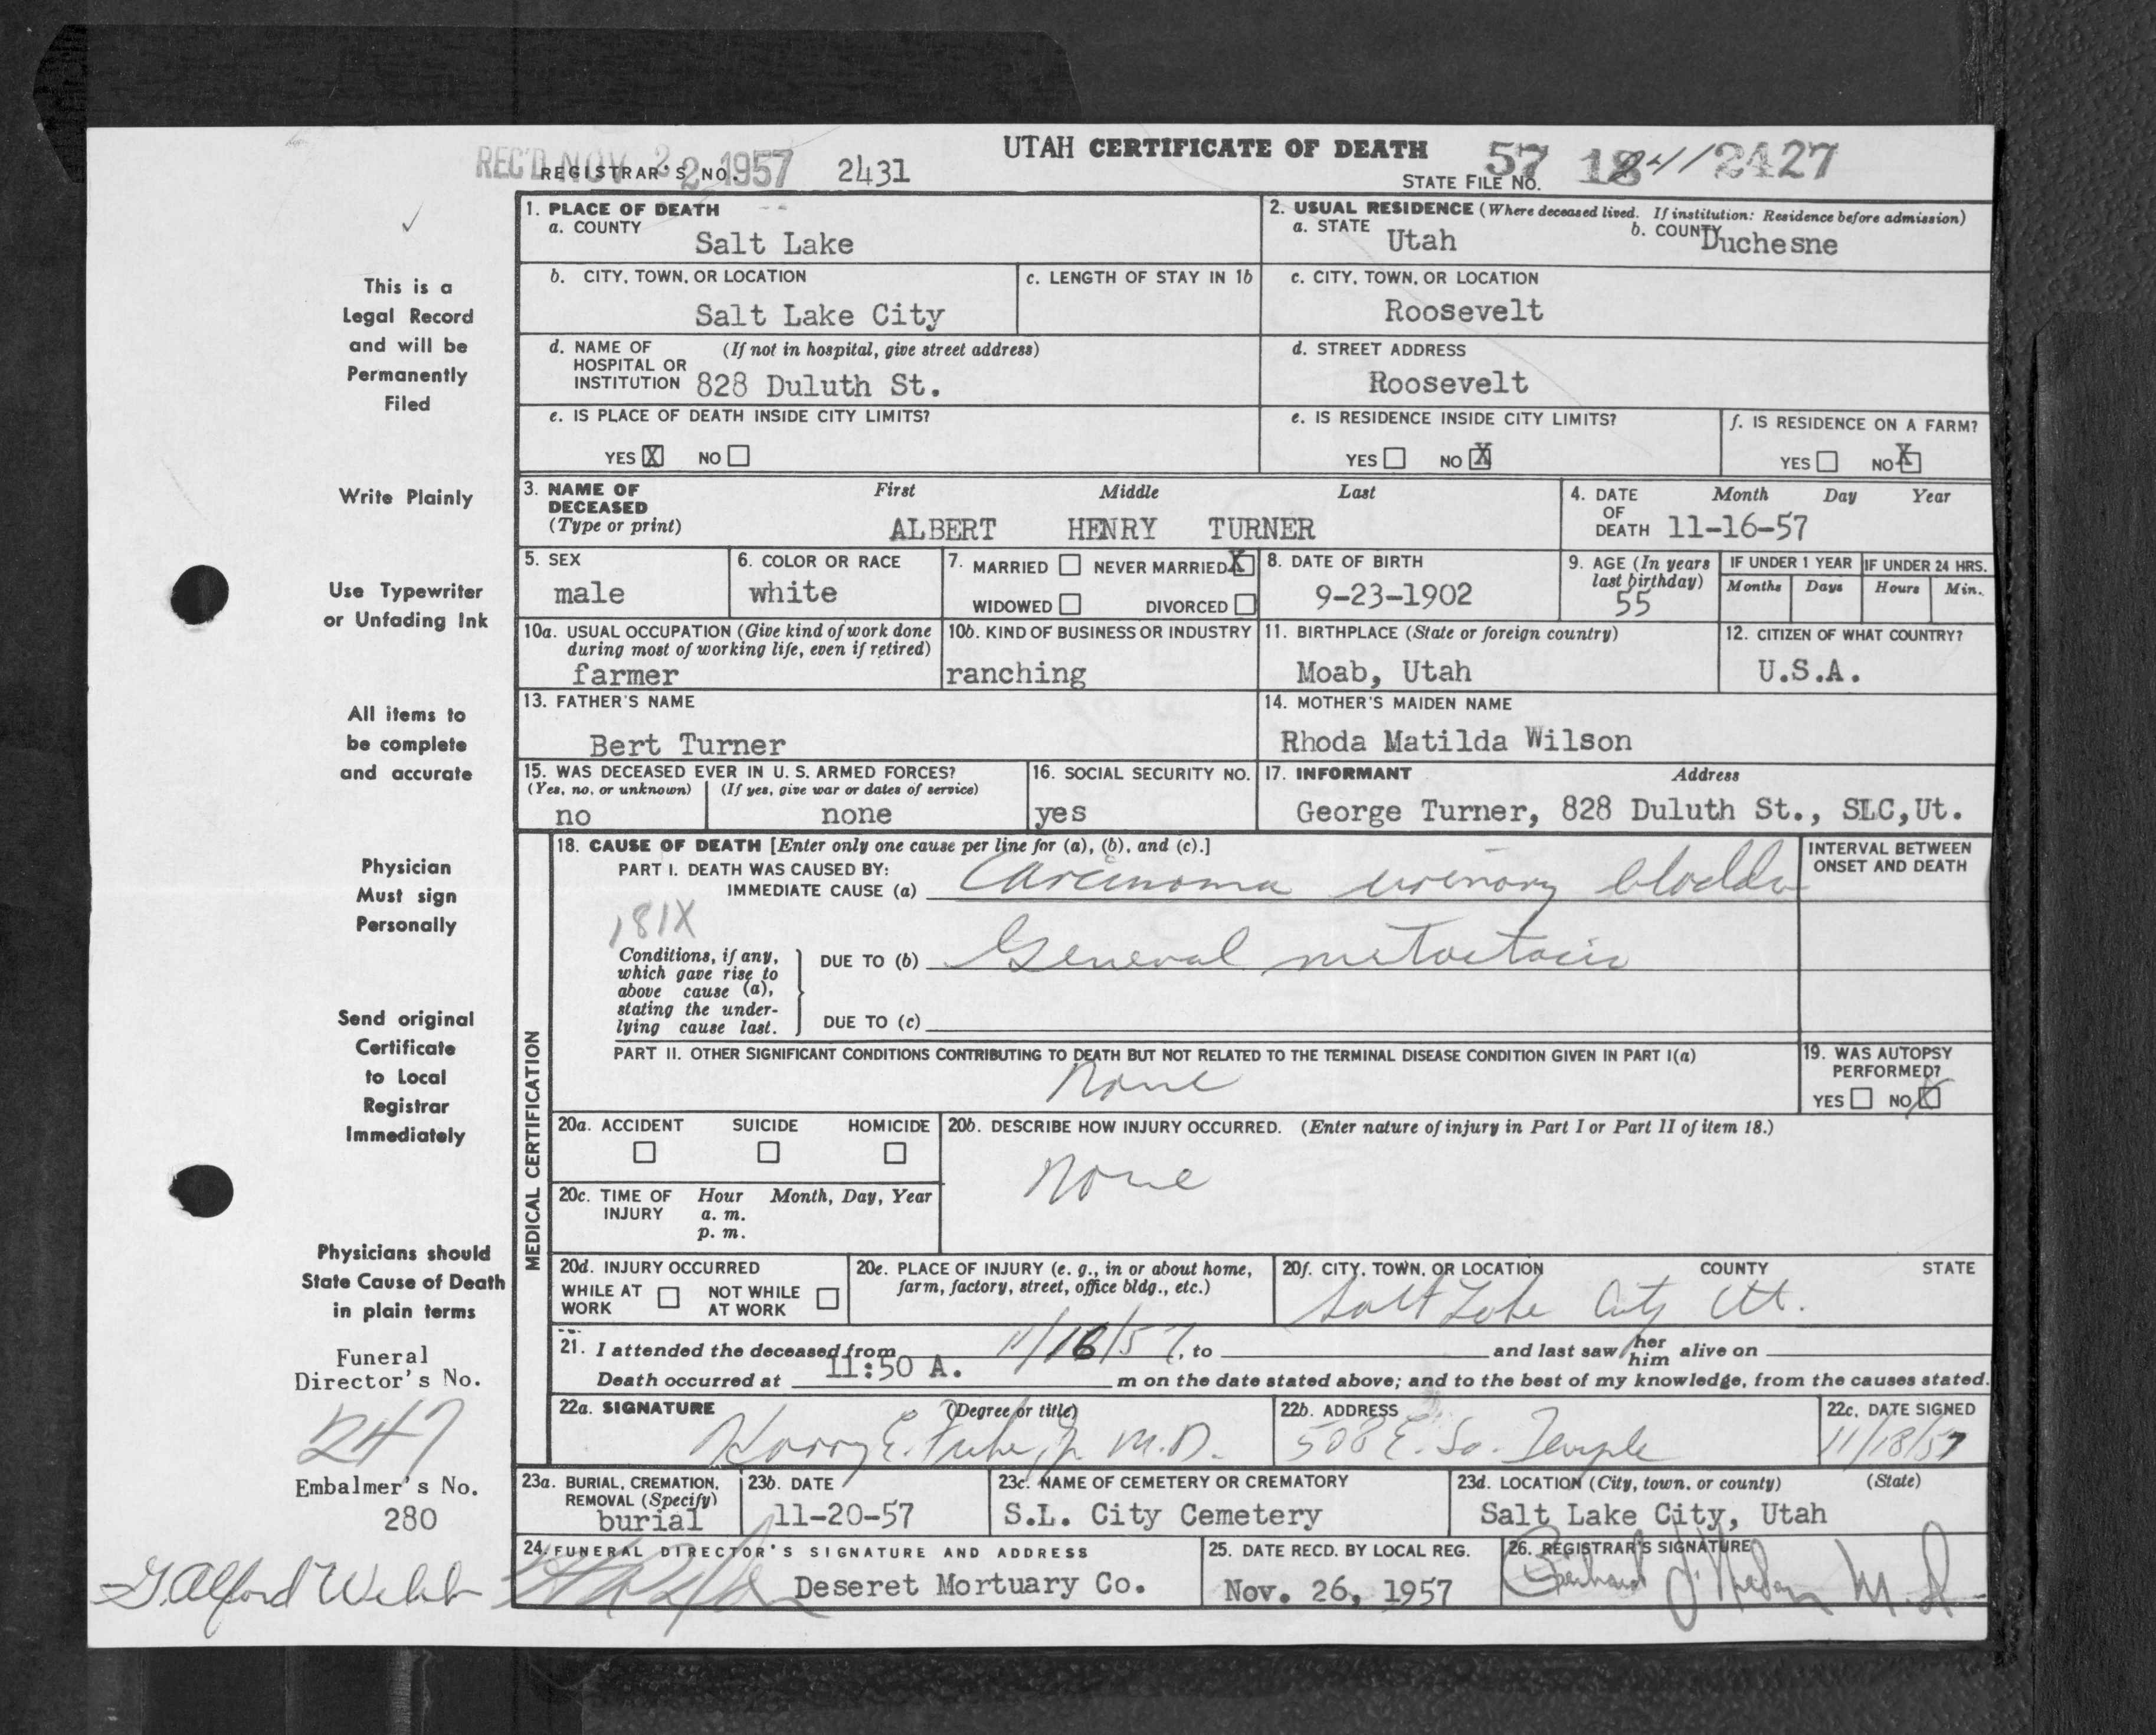 UTAH CERTIFICATE OF DEATH
REC'D NOV 22 1957
REGISTRAR'S NO. 2431
STATE FILE NO. 57 18 2427
1. PLACE OF DEATH
a. COUNTY Salt Lake
2. USUAL RESIDENCE (Where deceased lived. If institution: Residence before admission)
a. STATE Utah b. COUNTY Duchesne
b. CITY, TOWN, OR LOCATION Salt Lake City
c. LENGTH OF STAY IN 1b
c. CITY, TOWN, OR LOCATION Roosevelt
d. NAME OF HOSPITAL OR INSTITUTION (If not in hospital, give street address) 828 Duluth St.
d. STREET ADDRESS Roosevelt
e. IS PLACE OF DEATH INSIDE CITY LIMITS?
YES X NO
e. IS RESIDENCE INSIDE CITY LIMITS?
YES NO X
f. IS RESIDENCE ON A FARM?
YES NO X
3. NAME OF DECEASED (Type or print) First Middle Last
ALBERT HENRY TURNER
4. DATE OF DEATH Month Day Year
11-16-57
5. SEX male
6. COLOR OR RACE white
7. MARRIED NEVER MARRIED X
WIDOWED DIVORCED
8. DATE OF BIRTH 9-23-1902
9. AGE (In years last birthday) 55
IF UNDER 1 YEAR Months Days
IF UNDER 24 HRS. Hours Min.
10a. USUAL OCCUPATION (Give kind of work done during most of working life, even if retired)
farmer
10b. KIND OF BUSINESS OR INDUSTRY
ranching
11. BIRTHPLACE (State or foreign country)
Moab, Utah
12. CITIZEN OF WHAT COUNTRY?
U.S.A.
13. FATHER'S NAME
Bert Turner
14. MOTHER'S MAIDEN NAME
Rhoda Matilda Wilson
15. WAS DECEASED EVER IN U. S. ARMED FORCES?
(Yes, no, or unknown) (If yes, give war or dates of service)
no none
16. SOCIAL SECURITY NO.
yes
17. INFORMANT Address
George Turner, 828 Duluth St., SLC,Ut.
MEDICAL CERTIFICATION
18. CAUSE OF DEATH [Enter only one cause per line for (a), (b), and (c).]
INTERVAL BETWEEN ONSET AND DEATH
PART I. DEATH WAS CAUSED BY:
IMMEDIATE CAUSE (a) Carcinoma urinary bladder
181X
Conditions, if any, which gave rise to above cause (a), stating the underlying cause last.
DUE TO (b) General metastasis
DUE TO (c)
PART II. OTHER SIGNIFICANT CONDITIONS CONTRIBUTING TO DEATH BUT NOT RELATED TO THE TERMINAL DISEASE CONDITION GIVEN IN PART I(a)
None
19. WAS AUTOPSY PERFORMED?
YES NO X
20a. ACCIDENT SUICIDE HOMICIDE
20b. DESCRIBE HOW INJURY OCCURRED. (Enter nature of injury in Part I or Part II of item 18.)
None
20c. TIME OF INJURY Hour Month, Day, Year
a. m.
p. m.
20d. INJURY OCCURRED
WHILE AT WORK NOT WHILE AT WORK
20e. PLACE OF INJURY (e. g., in or about home, farm, factory, street, office bldg., etc.)
20f. CITY, TOWN, OR LOCATION COUNTY STATE
Salt Lake City Ut.
21. I attended the deceased from 11/16/57, to and last saw her him alive on
Death occurred at 11:50 A. m on the date stated above; and to the best of my knowledge, from the causes stated.
22a. SIGNATURE (Degree or title)
M.D.
22b. ADDRESS
508 E. So. Temple
22c. DATE SIGNED
11/18/57
23a. BURIAL, CREMATION, REMOVAL (Specify)
burial
23b. DATE
11-20-57
23c. NAME OF CEMETERY OR CREMATORY
S.L. City Cemetery
23d. LOCATION (City, town, or county) (State)
Salt Lake City, Utah
24. FUNERAL DIRECTOR'S SIGNATURE AND ADDRESS
Deseret Mortuary Co.
25. DATE RECD. BY LOCAL REG.
Nov. 26, 1957
26. REGISTRAR'S SIGNATURE
This is a
Legal Record
and will be
Permanently
Filed
Write Plainly
Use Typewriter
or Unfading Ink
All items to
be complete
and accurate
Physician
Must sign
Personally
Send original
Certificate
to Local
Registrar
Immediately
Physicians should
State Cause of Death
in plain terms
Funeral
Director's No.
247
Embalmer's No.
280
G. Alford Webb